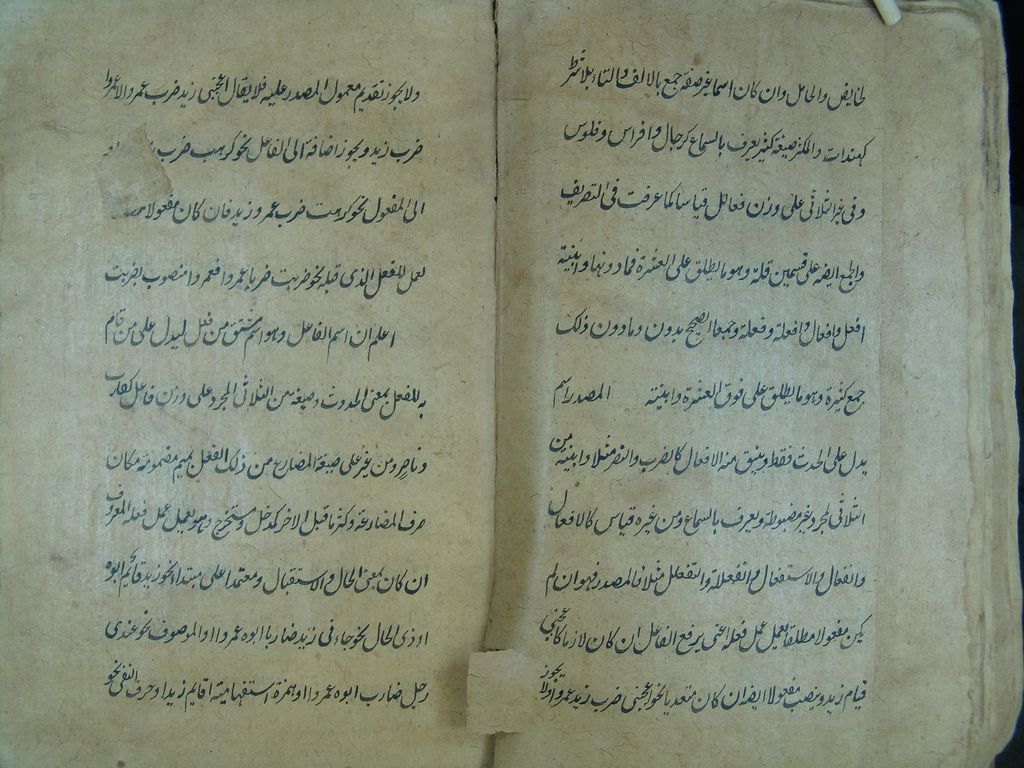 كحايض والحامل وان كان اسما غير صفة جمع بالالف والتاء بلا شرط
كهندات والمكسر صيغة كثير يعرف بالسماع كرجال وافراس وفلوس
وفى غير الثلاثى على وزن فعالل قياسا كما عرفت فى التصريف
والجمع ايضه على قسمين قلة وهو ما يطلق على العشرة فما دونها وابنية
افعل وافعال وافعلة وفعلة وجمعا الصحيح بدون وما دون ذلك
جمع كثيرة وهو ما يطلق على فوق العشرة وابنيته المصدر اسم
يدل على الحدث فقط ويشتق منه الافعال كالضرب والنصر مثلا وابنيته من
الثلاثى المجرد غير مضبوطة ويعرف بالسماع ومن غيره قياس كالافعال
والانفعال والاستفعال والفعللة والتفعلل مثلا فالمصدر هو ان لم
يكن مفعولا مطلقا يعمل عمل فعله اعنى يرفع الفاعل ان كان لازما كاعجبنى
قيام زيد وينصب مفعولا ايضه ان كان متعديا نحو اعجبنى ضرب زيد عمروا ولا يجوز
ولا يجوز تقديم معمول المصدر عليه فلا يقال اعجبنى زيد ضرب عمروا ولا عمروا
ضرب زيد ويجوز اضافة الى الفاعل نحو كرهت ضرب او
الى المفعول نحو كرهت ضرب عمرو زيد فان كان مفعولا
لعمل للفعل الذى قبله نحو ضربت ضربا عمروا فعمروا منصوب بضربت
اعلم ان اسم الفاعل وهو اسم مشتق من فعل ليدل على من قام
به الفعل بمعنى الحدوث وصيغة من الثلاثى المجرد على وزن فاعل كضارب
وناصر ومن غيره على صيغة المضارع من ذلك الفعل بميم مضمومة مكان
حرف المضارعة وكسر ما قبل الاخر كمدخل ومستخرج وهو يعمل عمل فعله المعروف
ان كان بمعنى الحال والاستقبال ومعتمدا على مبتداء نحو زيد قائم ابوه
او ذى الحال نحو جاءنى زيد ضاربا ابوه عمروا او الموصوف نحو عندى
رجل ضارب ابوه عمروا او همزة استفهامية اقايم زيد او حرف النفى نحو